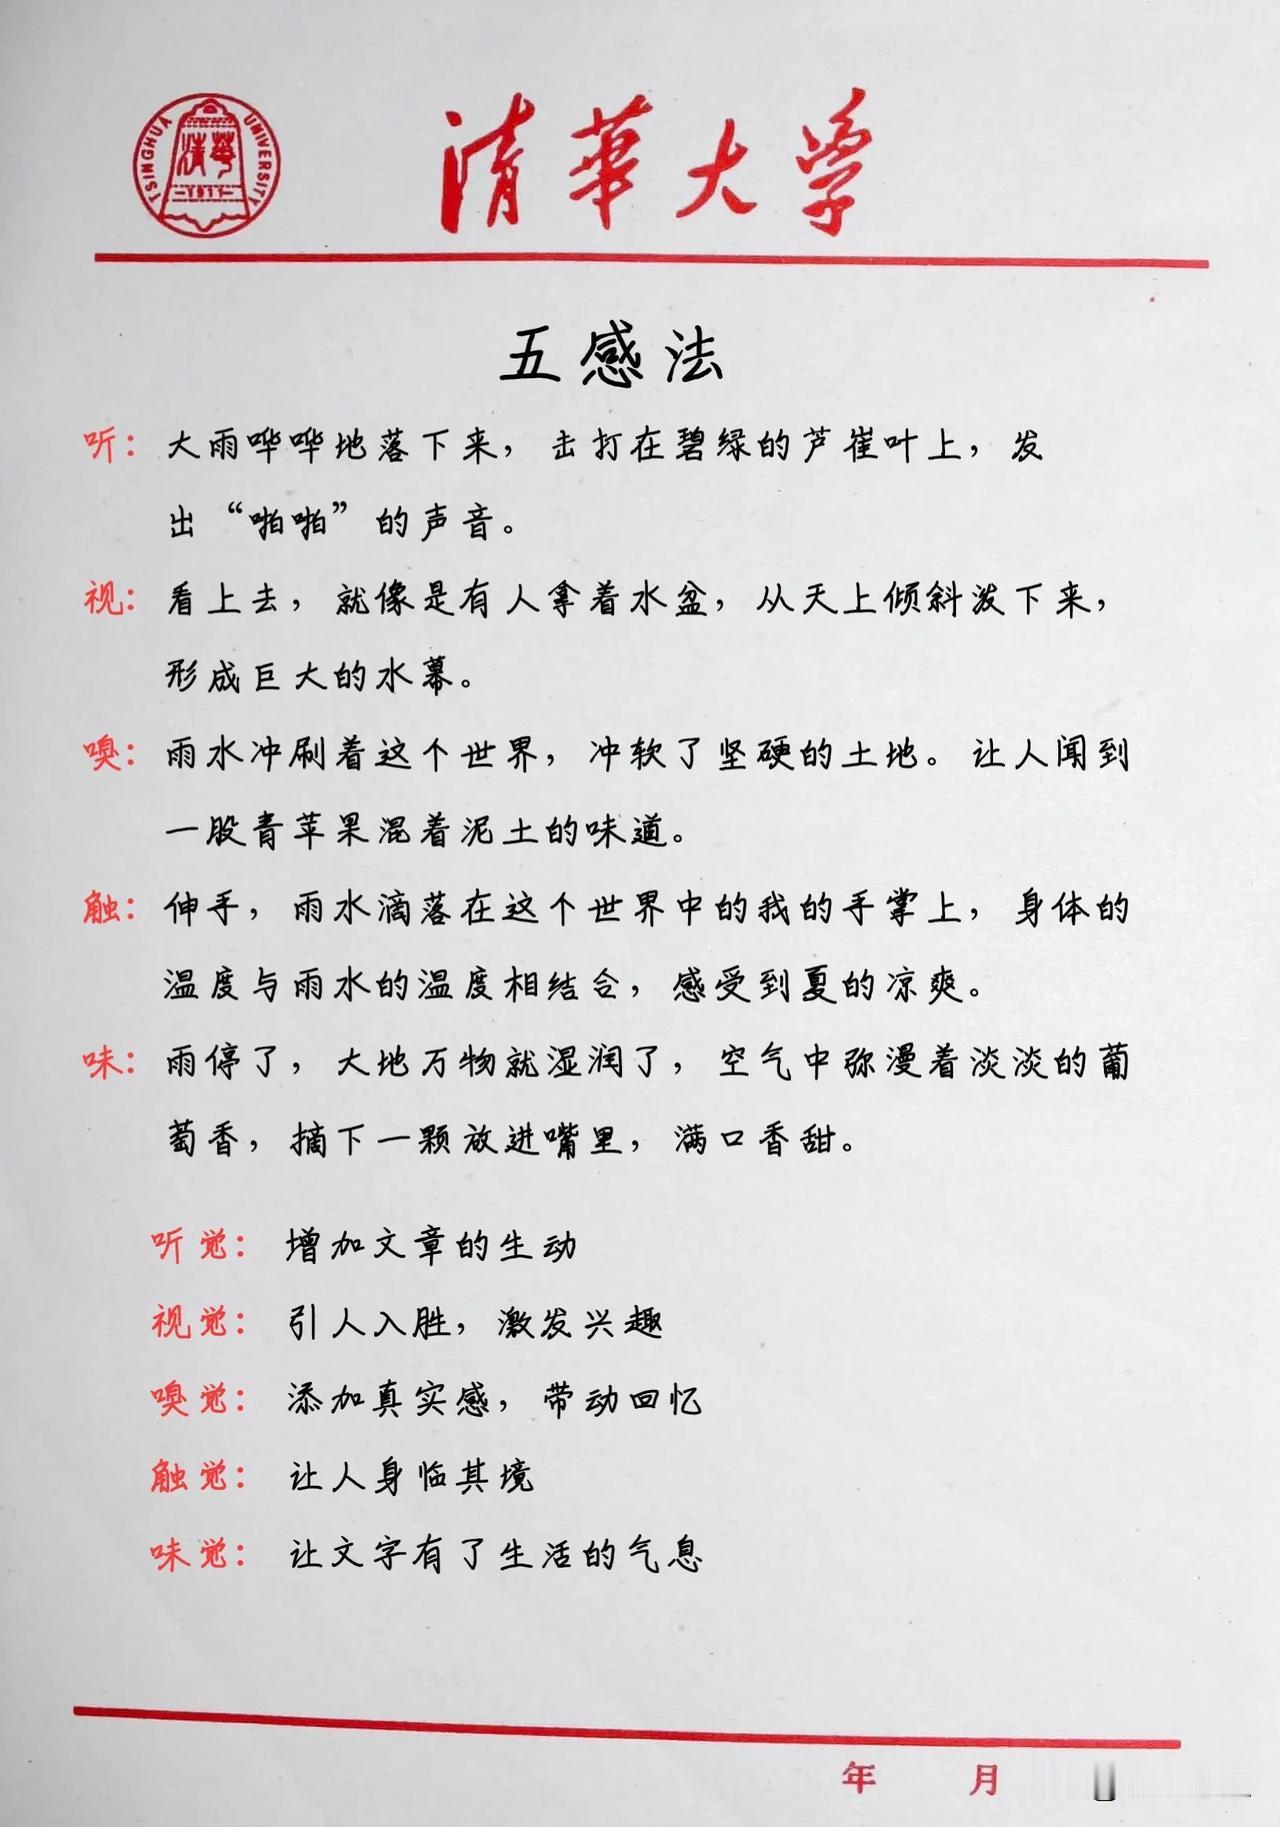 TSINGHUA UNIVERSITY
清華
-1911-
清華大学
五感法
听：大雨哗哗地落下来，击打在碧绿的芦崔叶上，发
出“啪啪”的声音。
视：看上去，就像是有人拿着水盆，从天上倾斜泼下来，
形成巨大的水幕。
嗅：雨水冲刷着这个世界，冲软了坚硬的土地。让人闻到
一股青苹果混着泥土的味道。
触：伸手，雨水滴落在这个世界中的我的手掌上，身体的
温度与雨水的温度相结合，感受到夏的凉爽。
味：雨停了，大地万物就湿润了，空气中弥漫着淡淡的葡
萄香，摘下一颗放进嘴里，满口香甜。
听觉：增加文章的生动
视觉：引人入胜，激发兴趣
嗅觉：添加真实感，带动回忆
触觉：让人身临其境
味觉：让文字有了生活的气息
年 月